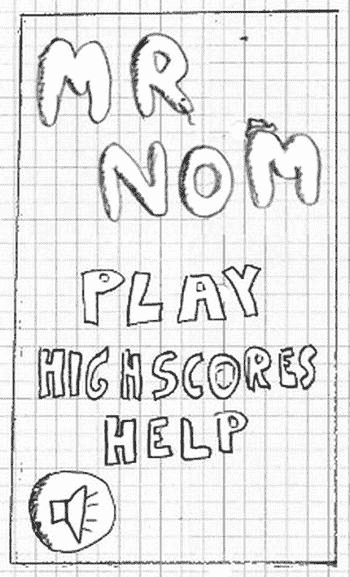 MR
NOM
PLAY
HIGHSCORES
HELP